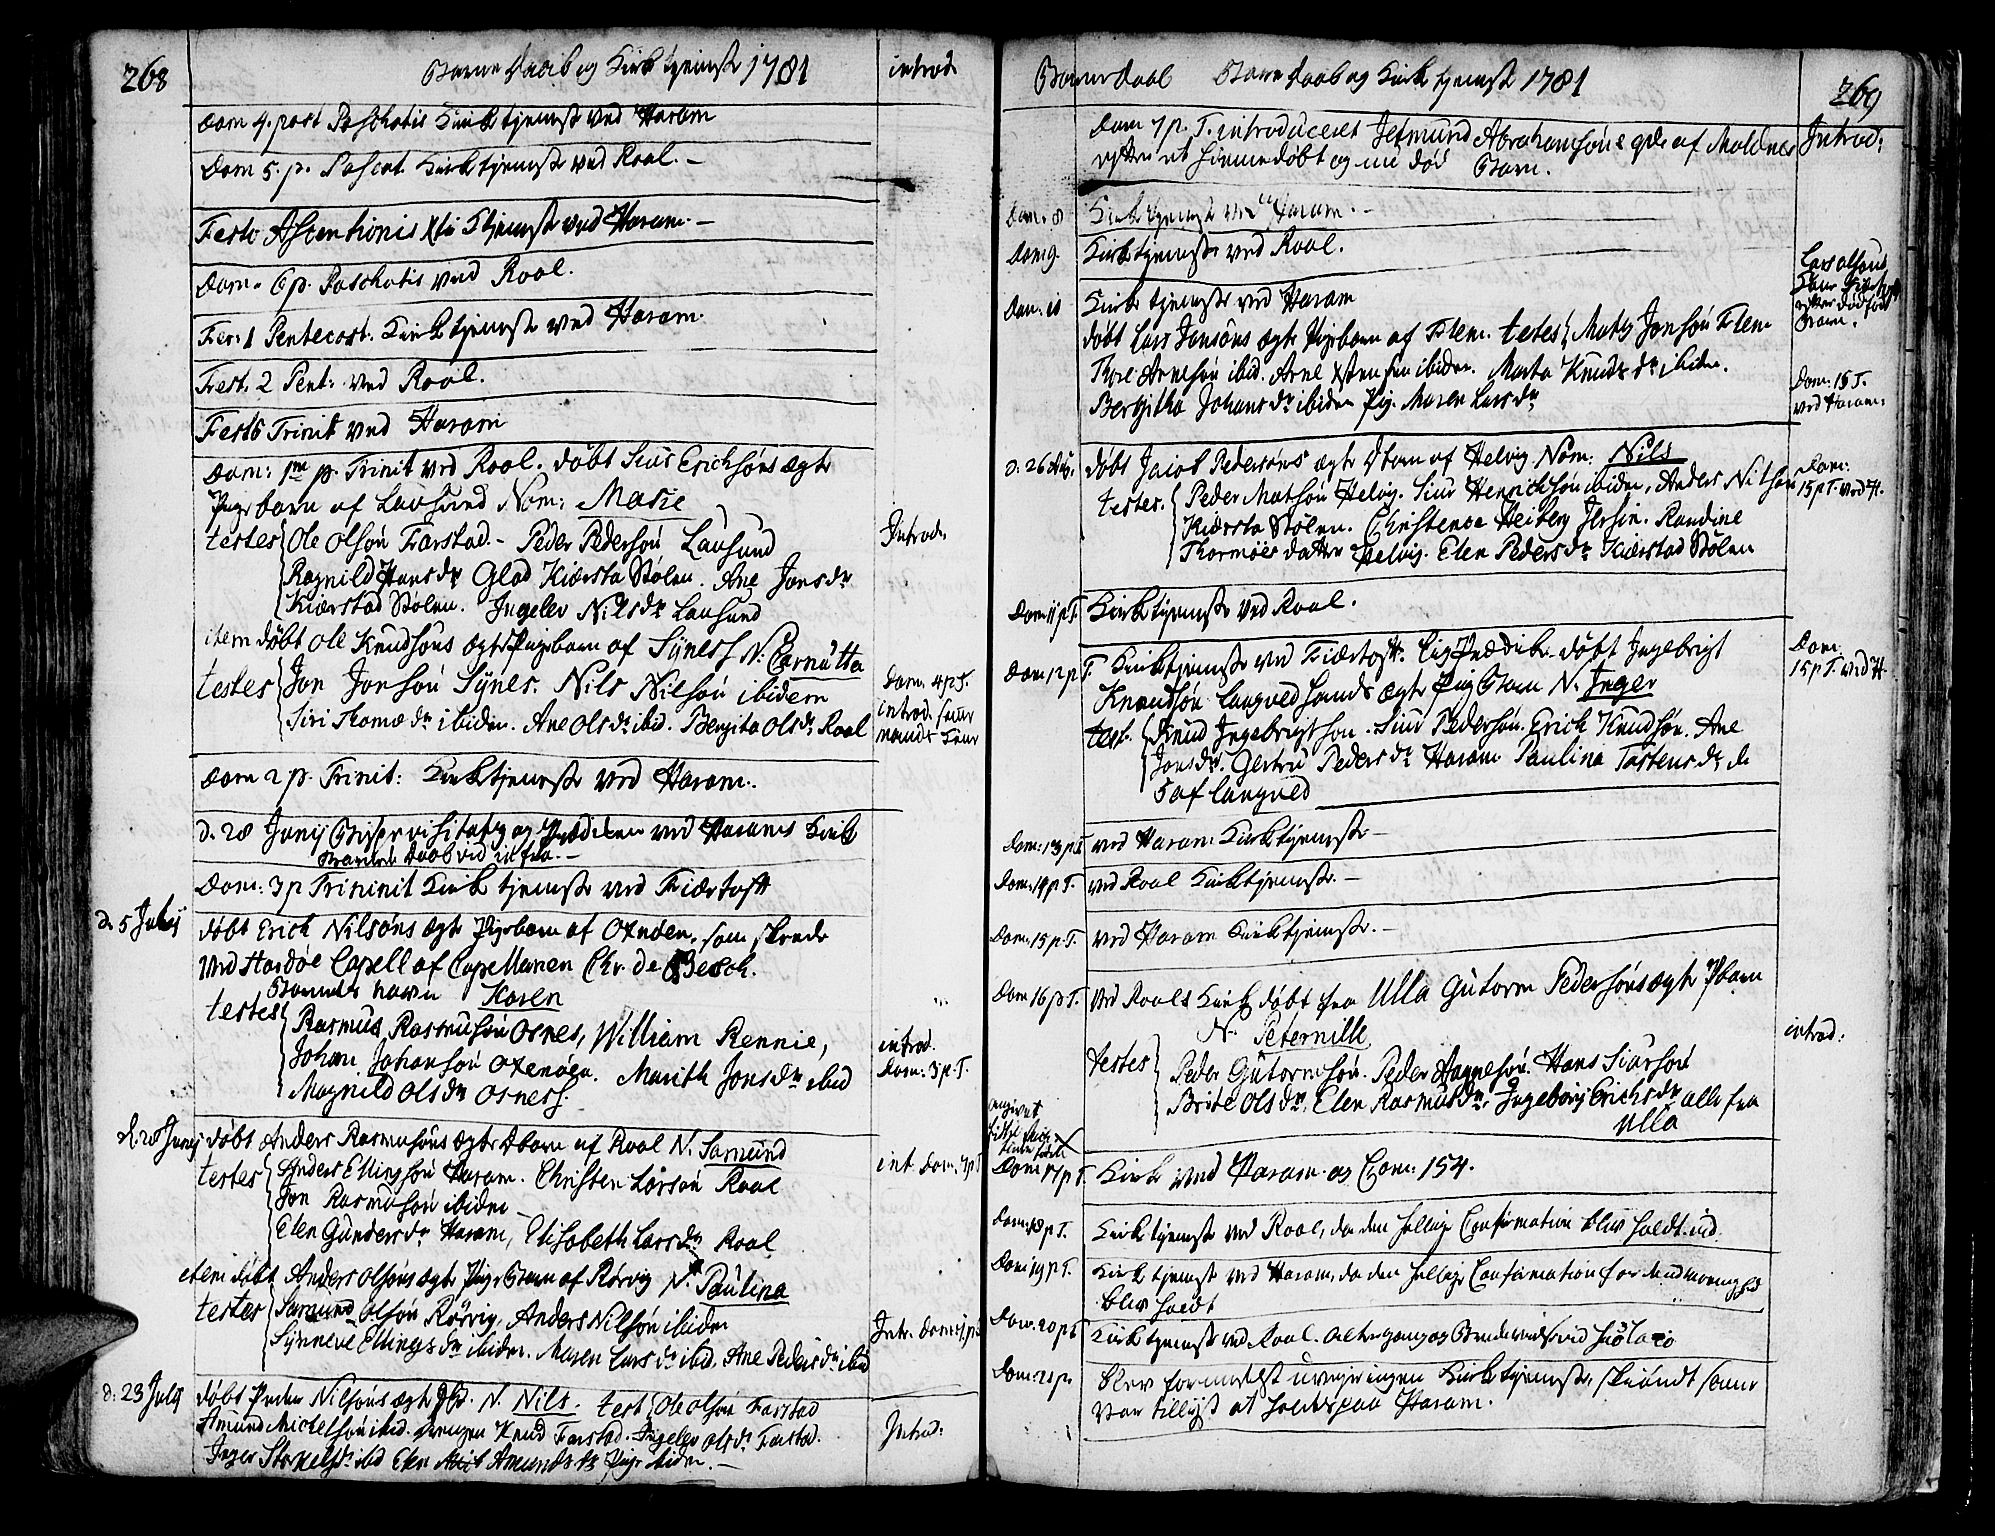 268
Barne Daab og Kirk tjeniste 1781
introd
Dom 4. post Paschatis Kirk tjeniste ved Haram
Dom 5. p. Paschat. Kirk tjeniste ved Roal. –
Festo Ascentionis Xti K tjeniste ved Haram. –
Dom. 6 p. Paschatis ved Roal.
Fer: 1 Pentecost. Kirk tjeniste ved Haram.
Fest. 2 Pent: ved Roal.
Festo Trinit ved Haram
Dom: 1me p. Trinit ved Roal. døbt Siur Erichsøns ægte
Pigebarn af Lausund Nom: Marie
testes Ole Olsøn Farstad. – Peder Pedersøn Lausund
Introd.
Ragnild Hansdtr Glad Kiærsta Stølen. Ane Jonsdr
Kiærstad Stølen. Ingelev Nilsdr Lausund
item døbt Ole Knudsøns ægte Pigebarn af Synes N. Carnutta
testes Jon Jonsøn Synes. Nils Nilsøn ibidem
Siri Thomædr ibidem. Ane Olsdr ibid. Bergita Olsdr Roal
Dom. 4 p T.
introd.
Dom 2 p. Trinit: Kirk tjeniste ved Haram.
d. 28 Junij Bispe visitatz og Prædiken ved Harams Kirk
Barne Daab vid infra. –
Dom: 3 p Trininit Kirk tjeniste ved Fiærtoft
d. 5 Julij
døbt Erich Nilsøns ægte Pigebarn af Oxnøen, som skeede
ved Hardøe Capell af Capellanen Chr. de Besch.
Barnets navn Karen
testes Rasmus Rasmusøn Osnes, William Rennie,
Johan Johansøn Oxenøen. Marith Jonsdr ibid
Magnild Olsdr Osness.
introd.
Dom: 3 p. T.
d. 28 Junij døbt Anders Rasmusøns ægte D barn af Roal N. Samund
testes Anders Ellingsøn Haram. Christen Larsøn Roal
int. Dom. 7 p T
Jon Rasmusøn ibidem
Elen Gundersdr Haram, Elisabeth Larsdr Roal
item døbt Anders Olsøns ægte Pige Barn af Rørvig N. Paulina
testes Samund Olsøn Rørvig, Anders Nilsøn ibidem
Synneve Ellingsdr ibidem. Maren Larsdr ibid. Ane Pedersdr ibid
d: 23 Julij døbt Peder Nilsøns ægte N. Nils. test Ole Olsøn Farstad
Amund Michelsøn ibid. drengen Knud Farstad. Ingelev Olsdr Farstad.
Inger dr ibid Elen Amundsdr Pige ibidem. –
Introd:
Barne Daab Barne daab og Kirk tjeniste 1781
269
Dom 7 p. T. introduceret Jetmund Abrahamsøns qde af Moldnes
efter et hiemmedøbt og nu død Barn.
Introd:
Dom: 8 Kirk tjeniste ved Haram. –
Dom 9. Kirk tjeniste ved Roal.
Dom. 10 Kirk tjeniste ved Haram
Lars Olsøns
efter dødfød
Barn.
døbt Lars Jonsøns ægte Pigebarn af Flem. testes Mats Jonsøn Flem
Thore Arnesøn ibid. Arne Xstensøn ibidem. Marta Knudsdr ibidem.
Bergitha Johansdr ibidem Pig. Maren Larsdr
Dom: 15 T.
ved Haram:
d: 26 Aug. døbt Jacob Pedersøns ægte D barn af Helvig Nom: Nils
testes. Peder Matsøn Helvig. Siur Henrichsøn ibidem, Anders Nilsøn
Kiærsta Stølen. Christence Heiberg Jersin. Randine
Thormoes datter Helvig. Elen Pedersdr Kiærstad Stølen
Dom:
15 p T. ved H.
Dom 11 p T. Kirk tjeniste ved Roal.
Dom 12 p T. Kirk tjeniste ved Fiærtoft. Døbt Ingebrigt
Knudsøn Langved Sands ægte Pig Barn N. Inger
Dom.
15 p T. ved H.
test. Knud Ingebrigtson. Siur Pedersøn. Erich Knudsøn. Ane
Jonsdr. Gertru Pedersdr Haram Paulina Tostensdr de
5 af Langved
Dom: 13 p T ved Haram Kirk tjeniste –
Dom. 14 p T. ved Roal Kirk tjeniste. –
Dom. 15 p. T. ved Haram Kirk tjeniste. –
Dom 16 p T. ved Roals Kirk døbt fra Ulla Gutorm Pedersøns ægte P barn
N. Peternille
testes Peder Gutormsøn. Peder Hagnesøn. Hans Siursøn
Brite Olsdr, Elen Rasmusdr, Ingeborg Erichsdr alle fra
Ulla
introd:
angivet
Dom 17 p T. Kirk ved Haram og Com: 154.
Dom. 18 p T. Kirk tjeniste ved Roal, da den hellige Confirmation blev holdt. vid.
Dom 19 p T. Kirk tjeniste ved Haram, da den hellige Confirmation for
blev holdt
Dom. 20 p T Kirk tjeniste ved Roal.
Dom: 21 p. blev formedelst uveyr ingen Kirk tjeniste, skiøndt samme
var tillyst at holdes paa Haram.